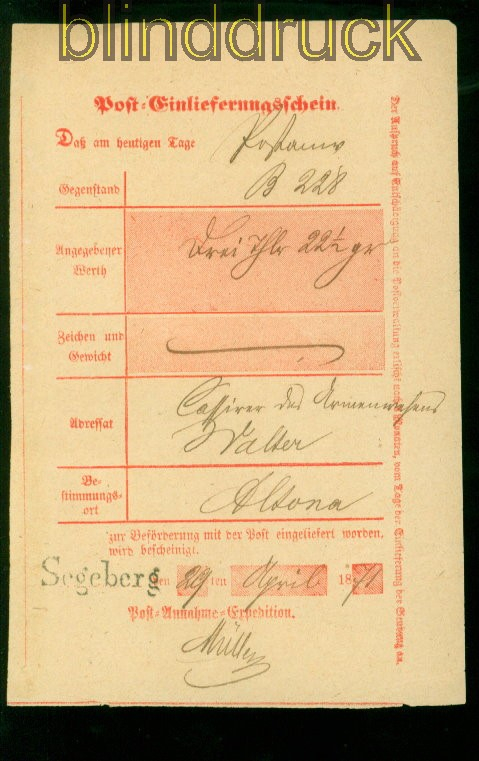 blinddruck
Post-Einlieferungsschein.
Daß am heutigen Tage
Gegenstand B 228
Angegebener Werth Drei Thlr 22½ gr
Zeichen und Gewicht
Adressat Cassirer des Armenwesens
Walter
Bestimmungsort Altona
zur Beförderung mit der Post eingeliefert worden,
wird bescheinigt.
Segeberg den 29 ten April 1871
Post-Annahme-Expedition.
Müller
Der Anspruch auf Entschädigung an die Postverwaltung erlischt nach Monaten, vom Tage der Einlieferung der Sendung an.